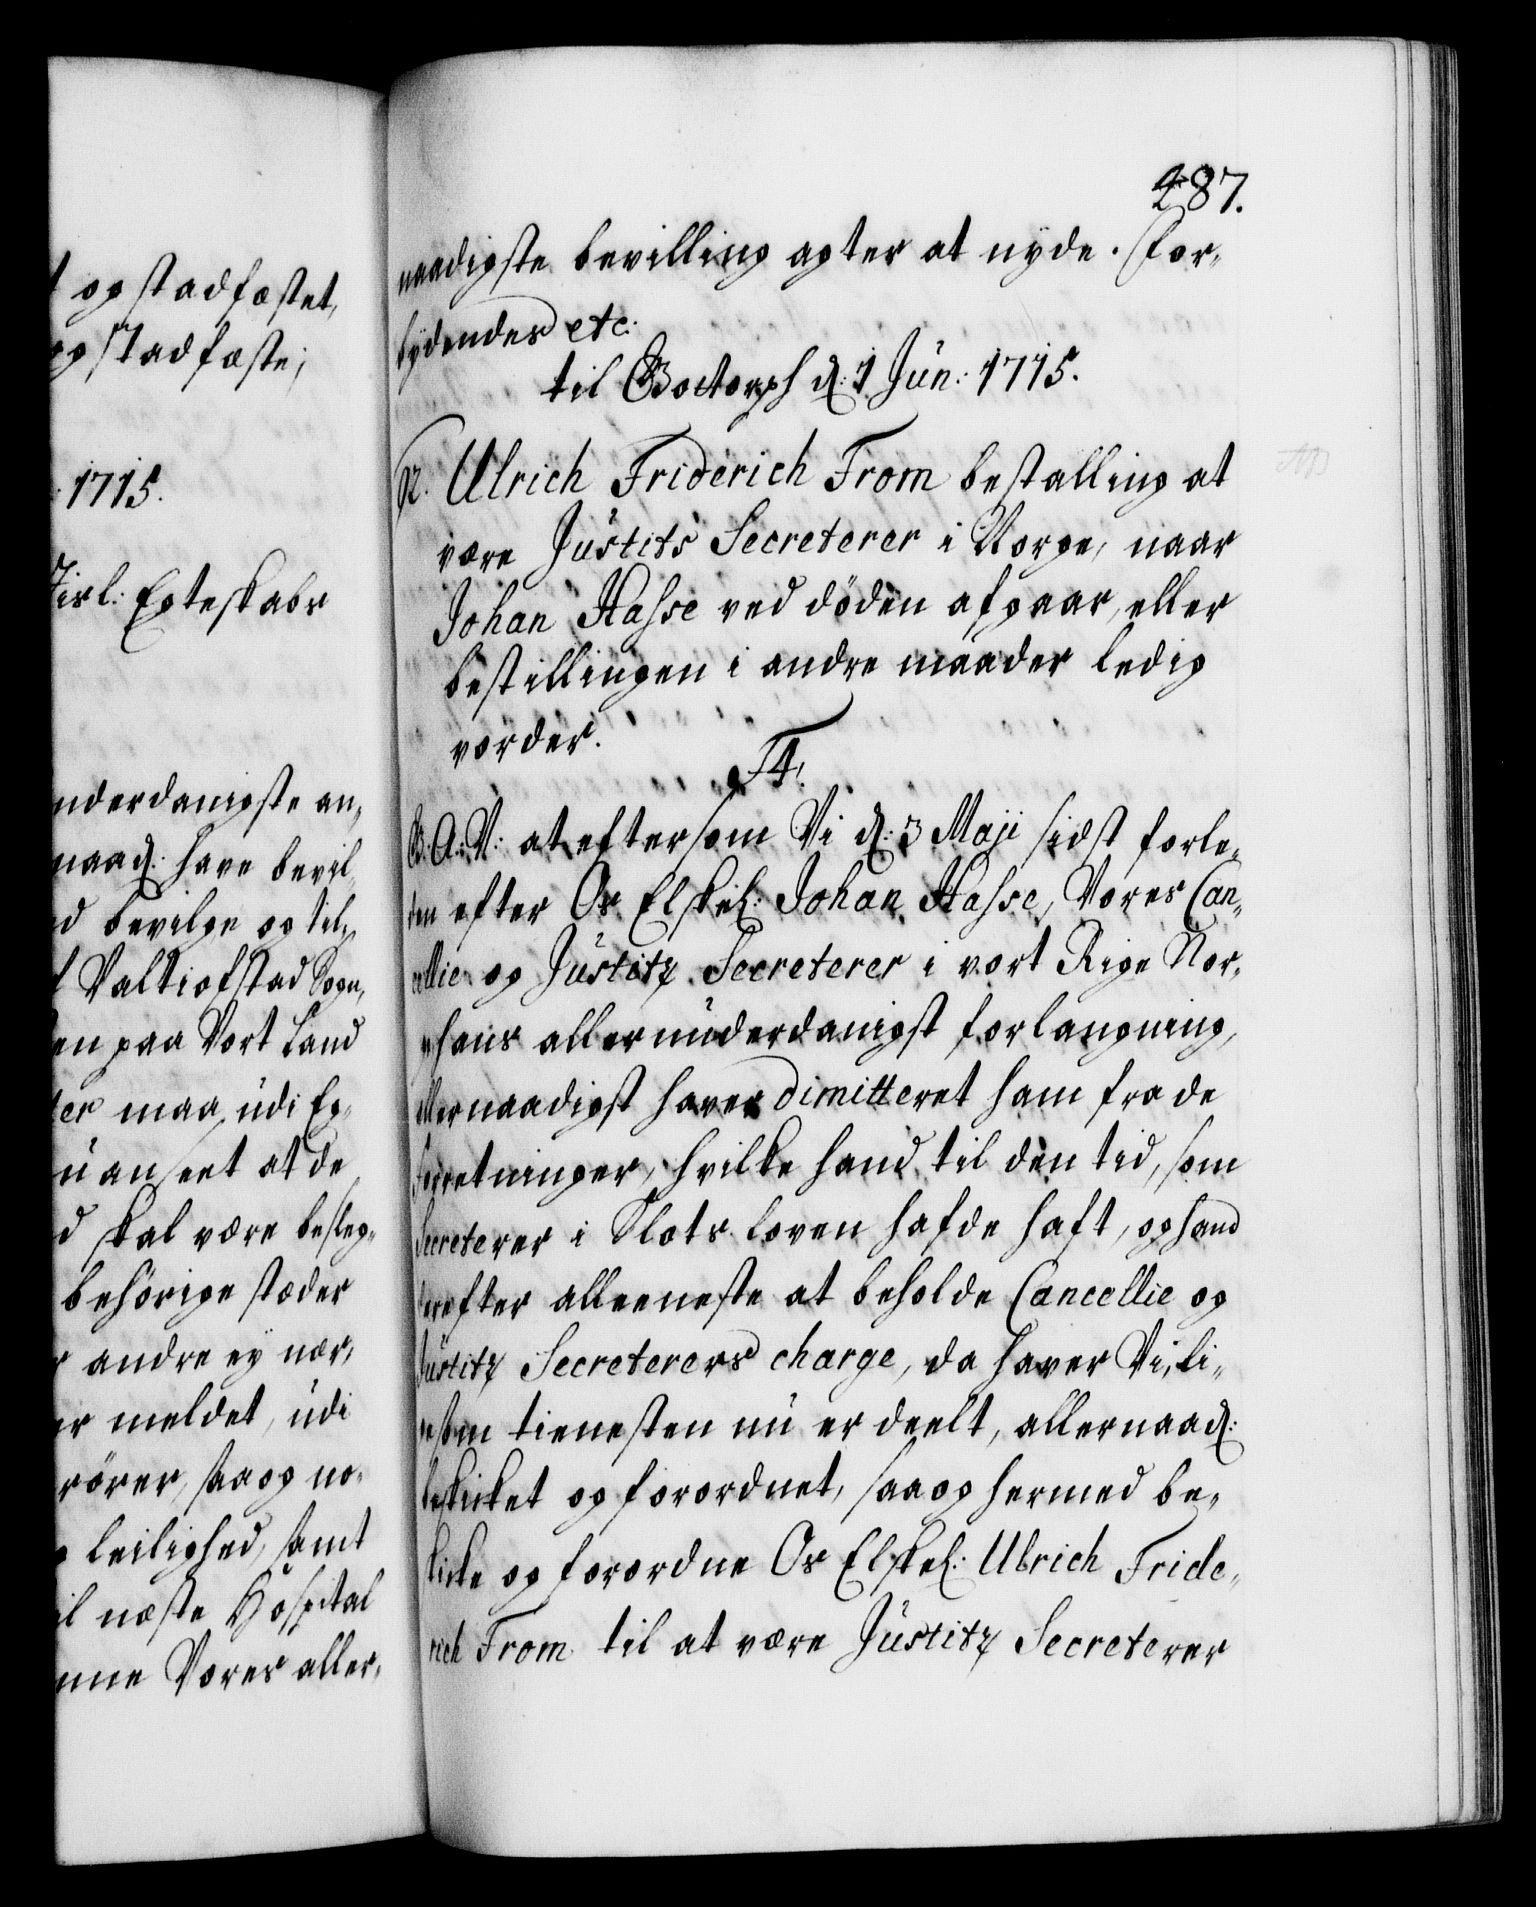 t og stadfæstet,
og stadfæste;
: 1715.
Tisl: Egteskabs
nderdanigste an,
naad: have bevil,
d bevilge og til,
Valtiofstad Sogn,
en paa Vort Land
ter maa udi Eg,
uanseet at de
d skal være besleg,
behörige stæder
andre ey nær,
er meldet, udi
rörer, saa og no,
leilighed, samt
il næste Hospital
nne Vores aller,
287.
naadigste bevilling agter at nyde. For,
bydendes etc:
til Gottorph d: 1 Jun: 1715.
Ulrich Friderich From bestalling at
være Justits Secreterer i Norge, naar
Johan Hasse ved döden afgaar, eller
bestillingen i andre maader ledig
vorder.
F4.
G: A: V: at eftersom Vi d: 3 Maji sidst forle,
den efter Os Elskel: Johan Hasse, Vores Can,
cellie og Justitz Secreterer i vort Rige Nor,
ge hans allerunderdanigst forlangning,
allernaadigst haver dimitteret ham fra de
forretninger, hvilke hand til den tid, som
Secreterer i Slots loven hafde haft, og hand
derefter alleeneste at beholde Cancellie og
Justitz Secreterers charge, da haver Vi, li,
gesom tienesten nu er deelt, allernaad:
beskicket og forordnet, saa og hermed be,
skicke og forordne Os Elskel: Ulrich Fride,
rich From til at være Justitz Secreterer